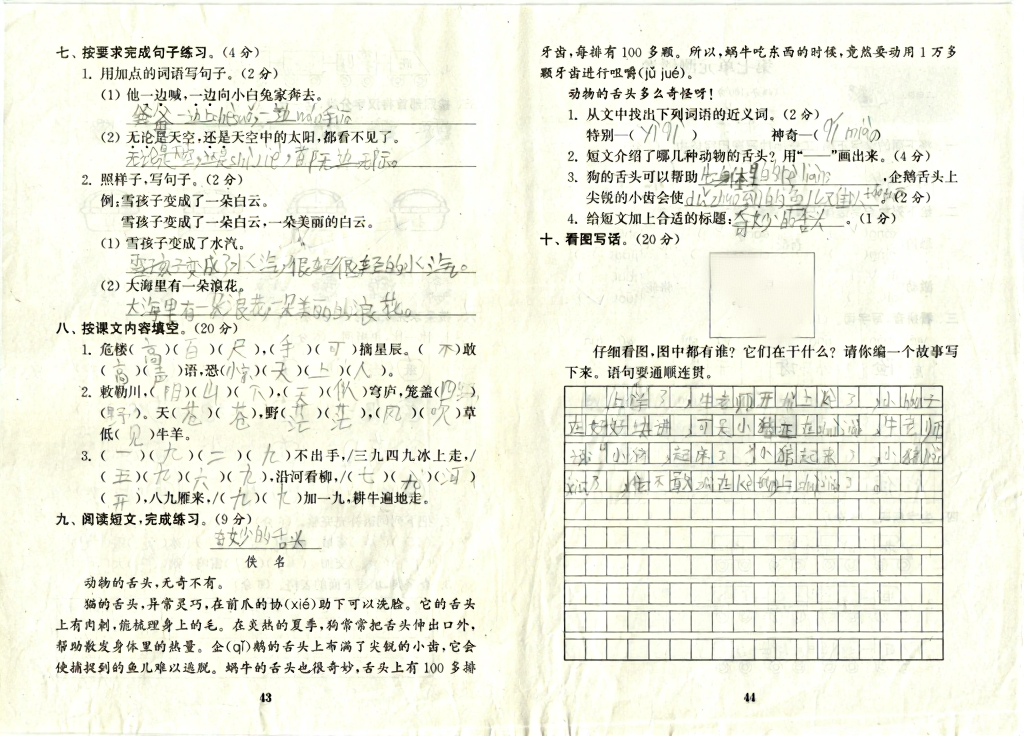 七、按要求完成句子练习。(4分)
1. 用加点的词语写句子。(2分)
(1) 他一边喊,一边向小白兔家奔去。
爸爸一边 一边
(2) 无论是天空,还是天空中的太阳,都看不见了。
无论是 还是shì jiè,都无边无际。
2. 照样子,写句子。(2分)
例:雪孩子变成了一朵白云。
雪孩子变成了一朵白云,一朵美丽的白云。
(1) 雪孩子变成了水汽。
雪孩子变成了水汽,很轻很轻的水汽。
(2) 大海里有一朵浪花。
大海里有一朵浪花,一朵美丽的浪花。
八、按课文内容填空。(20分)
1. 危楼(高)(百)(尺),(手)(可)摘星辰。(不)敢
(高)(声)语,恐(惊)(天)(上)(人)。
2. 敕勒川,(阴)(山)(下),(天)(似)穹庐,笼盖(四)
(野)。天(苍)(苍),野(茫)(茫),(风)(吹)草
低(见)牛羊。
3. (一)(九)(二)(九)不出手,/三九四九冰上走,/
(五)(九)(六)(九),沿河看柳,/(七)(九)(河)
(开),八九雁来,/(九)(九)加一九,耕牛遍地走。
九、阅读短文,完成练习。(9分)
奇妙的舌头
佚 名
动物的舌头,无奇不有。
猫的舌头,异常灵巧,在前爪的协(xié)助下可以洗脸。它的舌头
上有肉刺,能梳理身上的毛。在炎热的夏季,狗常常把舌头伸出口外,
帮助散发身体里的热量。企(qǐ)鹅的舌头上布满了尖锐的小齿,它会
使捕捉到的鱼儿难以逃脱。蜗牛的舌头也很奇妙,舌头上有100多排
43
牙齿,每排有100多颗。所以,蜗牛吃东西的时候,竟然要动用1万多
颗牙齿进行咀嚼(jǔ jué)。
动物的舌头多么奇怪呀!
1. 从文中找出下列词语的近义词。(2分)
特别—( ) 神奇—( )
2. 短文介绍了哪几种动物的舌头?用“——”画出来。(4分)
3. 狗的舌头可以帮助 体里的 ,企鹅舌头上
尖锐的小齿会使 到的鱼儿 。(2分)
4. 给短文加上合适的标题: 奇妙的舌头 。(1分)
十、看图写话。(20分)
仔细看图,图中都有谁?它们在干什么?请你编一个故事写
下来。语句要通顺连贯。
了,牛老师开始上课了,小
在好好 ,可是小猪正在 ,牛老师
“小猪,起床了”小猪起来了,小猪
了, 不敢 在 了。
44